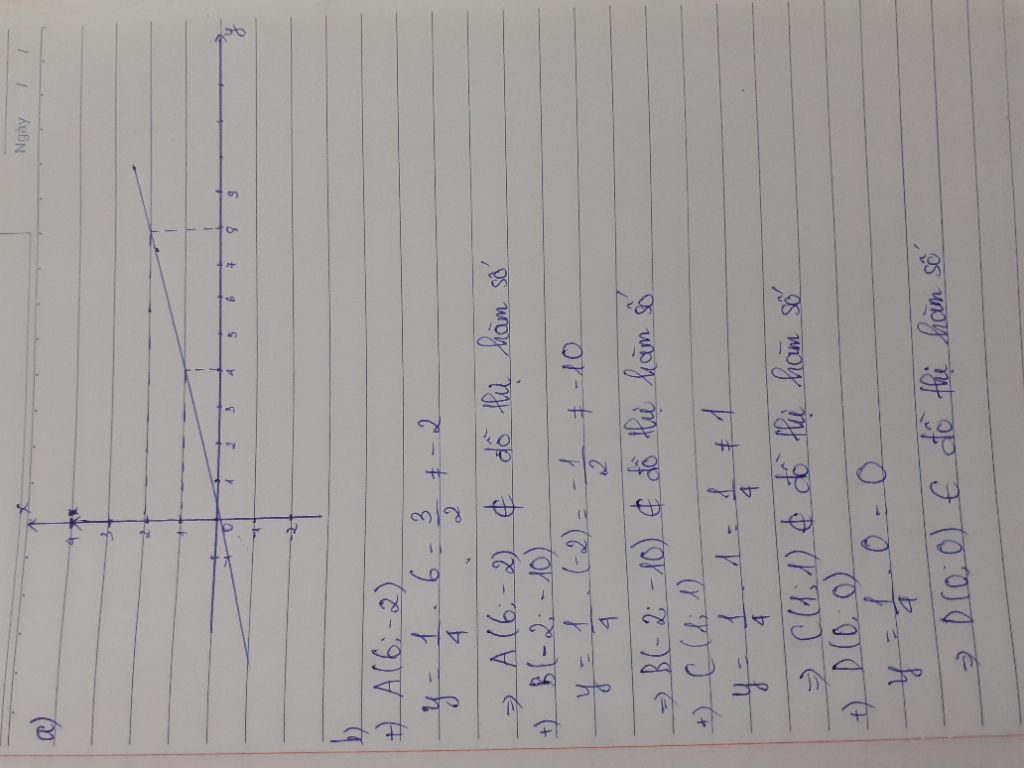 Ngày / /
a)
x
4
3
2
1
0
-1
-2
-1 1 2 3 4 5 6 7 8 9 y
b)
+) A(6; -2)
y = 1/4 . 6 = 3/2 ≠ -2
⇒ A(6; -2) ∉ đồ thị hàm số
+) B(-2; -10)
y = 1/4 . (-2) = -1/2 ≠ -10
⇒ B(-2; -10) ∉ đồ thị hàm số
+) C(1; 1)
y = 1/4 . 1 = 1/4 ≠ 1
⇒ C(1; 1) ∉ đồ thị hàm số
+) D(0; 0)
y = 1/4 . 0 = 0
⇒ D(0; 0) ∈ đồ thị hàm số